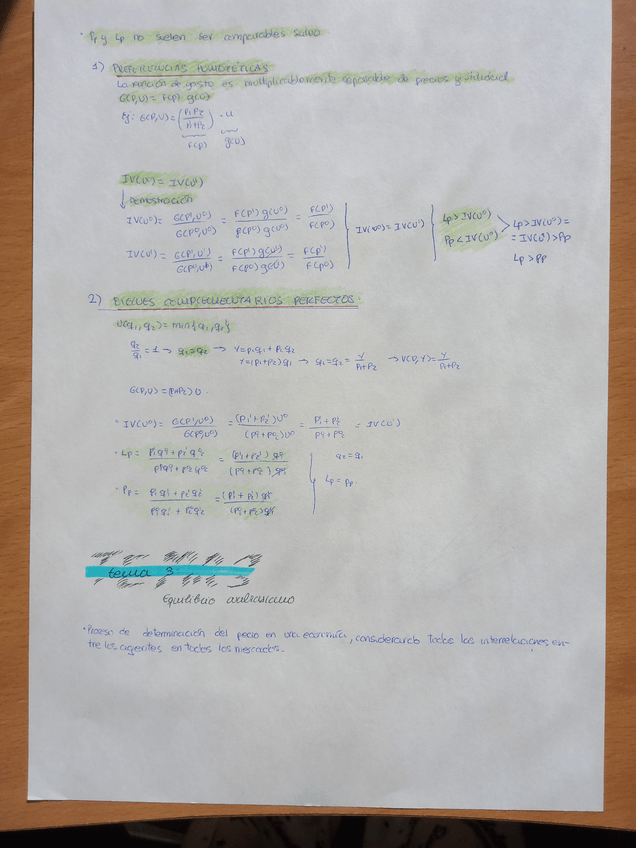 · Pp y Lp no suelen ser comparables salvo
1) PREFERENCIAS HOMOTÉTICAS
La función de gasto es multiplicablemente separable de precios y utilidad
G(P,U) = F(p) g(u)
Ej: G(P,U) = (P1P2 / P1+P2) · u
F(p) g(u)
IV(U⁰) = IV(U¹)
↓ DEMOSTRACIÓN
IV(U⁰) = G(P¹,U⁰) / G(P⁰,U⁰) = F(P¹) g(U⁰) / F(P⁰) g(U⁰) = F(P¹) / F(P⁰)
IV(U¹) = G(P¹,U¹) / G(P⁰,U¹) = F(P¹) g(U¹) / F(P⁰) g(U¹) = F(P¹) / F(P⁰)
IV(U⁰) = IV(U¹)
Lp > IV(U⁰)
Pp < IV(U¹)
Lp > IV(U⁰) =
= IV(U¹) > Pp
Lp > Pp
2) BIENES COMPLEMENTARIOS PERFECTOS:
U(q1, q2) = min{q1, q2}
q2/q1 = 1 → q1 = q2 → Y = P1q1 + P2q2
Y = (P1+P2) q1 → q1 = q2 = Y / P1+P2 → V(P,Y) = Y / P1+P2
G(P,U) = (P1+P2) U.
· IV(U⁰) = G(P¹,U⁰) / G(P⁰,U⁰) = (P1¹+P2¹) U⁰ / (P1⁰+P2⁰) U⁰ = P1¹+P2¹ / P1⁰+P2⁰ = IV(U¹)
· Lp = P1¹q1⁰ + P2¹q2⁰ / P1⁰q1⁰ + P2⁰q2⁰ = (P1¹+P2¹) q1⁰ / (P1⁰+P2⁰) q1⁰
q2 = q1
Lp = Pp
· Pp = P1¹q1¹ + P2¹q2¹ / P1⁰q1¹ + P2⁰q2¹ = (P1¹+P2¹) q1¹ / (P1⁰+P2⁰) q1¹
tema 3:
Equilibrio walrasiano
· Proceso de determinación del pecio en una economía, considerando todas las interrelaciones en-
tre los agentes en todos los mercados.